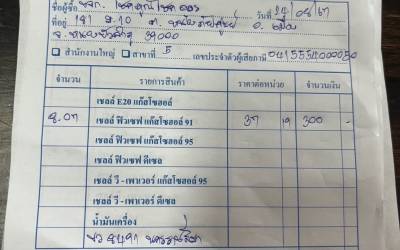 ชื่อผู้ซื้อ หจก. วันที่ 24/08/67
ที่อยู่ 181 ม.10 ต. อ. เมือง
จ. 39000
สำนักงานใหญ่ สาขาที่ 5 เลขประจำตัวผู้เสียภาษี
จำนวน รายการสินค้า ราคาต่อหน่วย จำนวนเงิน
เชลล์ E20 แก๊สโซฮอล์
8.07 เชลล์ ฟิวเซฟ แก๊สโซฮอล์ 91 37 19 300 -
เชลล์ ฟิวเซฟ แก๊สโซฮอล์ 95
เชลล์ ฟิวเซฟ ดีเซล
เชลล์ วี - เพาเวอร์ แก๊สโซฮอล์ 95
เชลล์ วี - เพาเวอร์ ดีเซล
น้ำมันเครื่อง
8491